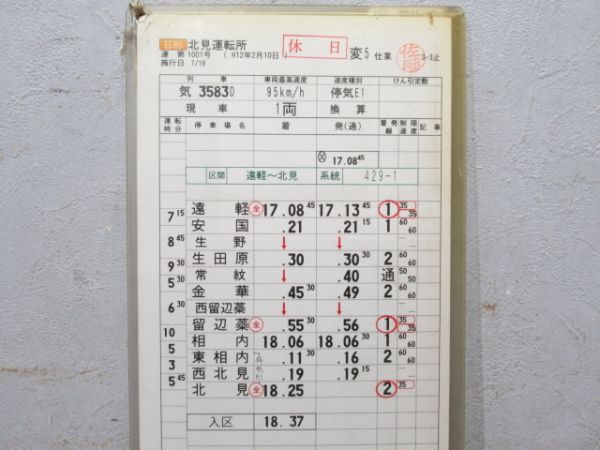 日別 北見運転所 休日 変5仕業 佐藤 3-3止
運第1001号 (H12年2月10日)
施行日 7/18
列車 車両最高速度 速度種別 けん引定数
気 3583D 95km/h 停気E1
現車 1両 換算
運転時分 停車場名 着 発(通) 着発線 制限速度 記事
17.08 45
区間 遠軽～北見 系統 429-1
遠軽 全 17.08 45 17.13 45 1 35 35
7 15
安国 .21 .21 15 1 60 60
生野 ↓ ↓
8 45
生田原 .30 .30 30 2 60 60
9 30
常紋 .40 通 50 50
5 30
金華 .45 30 .49 2 60 60
西留辺蘂 ↓ ↓
6 30
留辺蘂 全 .55 30 .56 1 35 35
10
相内 18.06 18.06 30 1 60 60
5
東相内 .11 30 .16 2 60 60
3
西北見 .19 .19 15
5 45
北見 全 18.25 2 35
入区 18.37